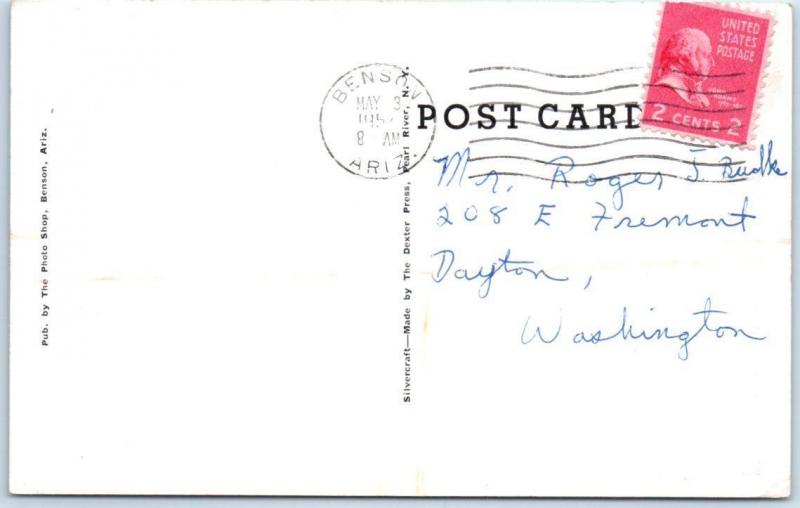 Pub. by The Photo Shop, Benson, Ariz.
BENSON
MAY 3
8 AM
ARIZ
Silvercraft—Made by The Dexter Press, Pearl River, N.Y.
POST CARD
UNITED
STATES
POSTAGE
JOHN
ADAMS
2 CENTS 2
Mr. Roger J.
208 E Fremont
Dayton,
Washington